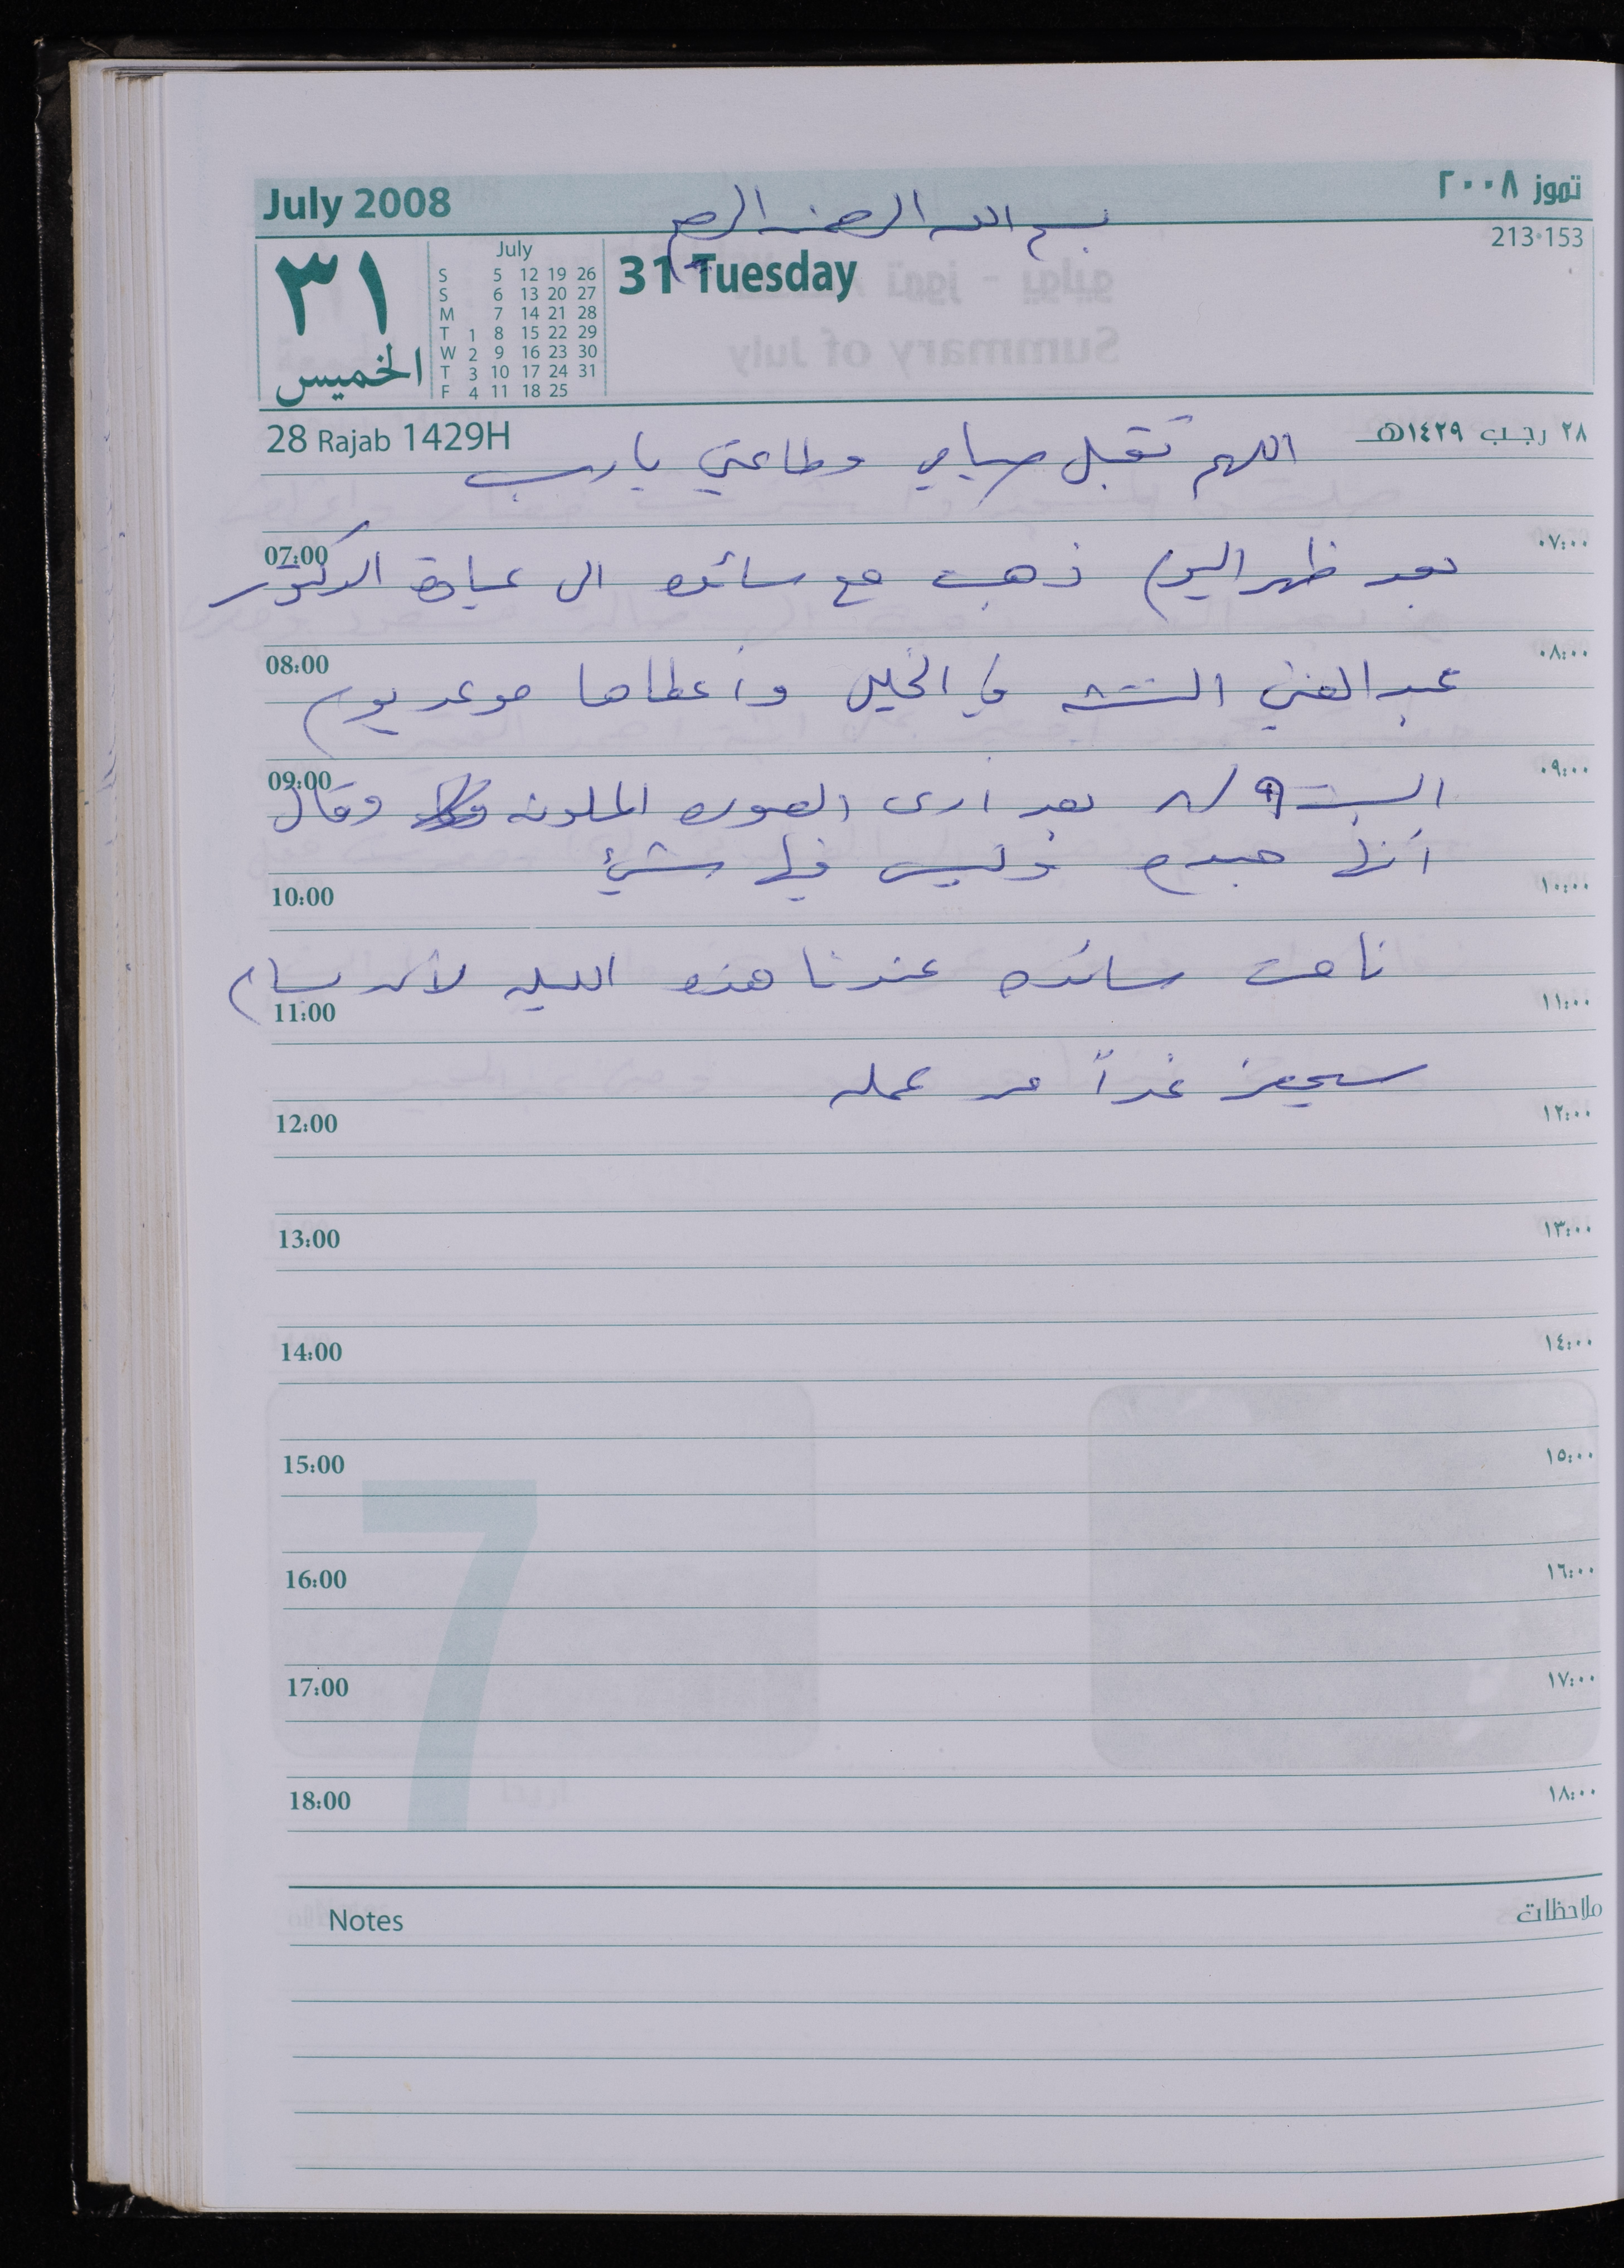 July 2008
تموز ٢٠٠٨
بسم الله الرحمن الرحيم
213-153
٣١
الخميس
July
S 5 12 19 26
S 6 13 20 27
M 7 14 21 28
T 1 8 15 22 29
W 2 9 16 23 30
T 3 10 17 24 31
F 4 11 18 25
31 Tuesday
28 Rajab 1429H
٢٨ رجب ١٤٢٩هـ
اللهم تقبل صيامي وطاعتي يا رب
07:00 ٠٧:٠٠
بعد ظهر اليوم ذهبت مع سائده الى عيادة الدكتور
08:00 ٠٨:٠٠
عبد الغني في الخليل وأعطاها موعد يوم
09:00 ٠٩:٠٠
السبت ٩/٨ بعد ارى الصوره الملونه وقال
أنها جيده وليس فيها شيئ
10:00 ١٠:٠٠
نامت سائده عندنا هذه الليله لأن بسام
11:00 ١١:٠٠
سيجيز غداً من عمله
12:00 ١٢:٠٠
13:00 ١٣:٠٠
14:00 ١٤:٠٠
15:00 ١٥:٠٠
7
16:00 ١٦:٠٠
17:00 ١٧:٠٠
18:00 ١٨:٠٠
Notes ملاحظات